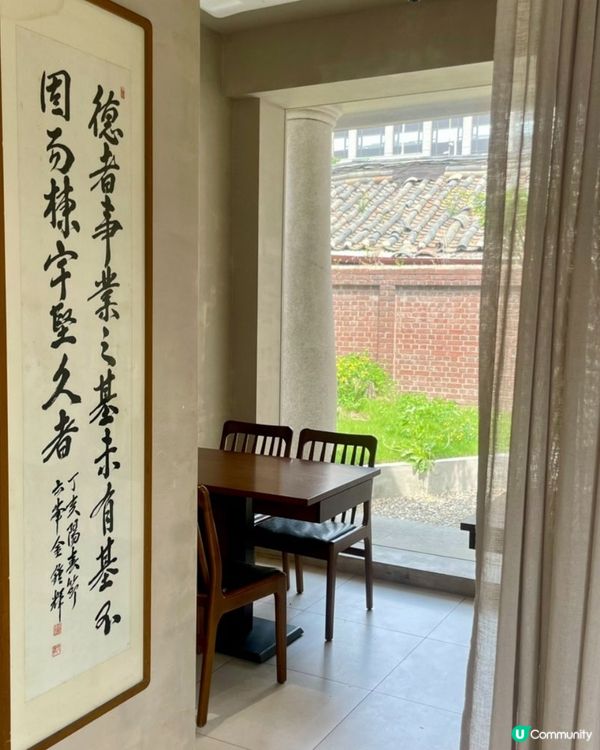 德者事業之基未有基不
固而棟宇堅久者
丁亥陽春節
峯金鍾輝
U Community